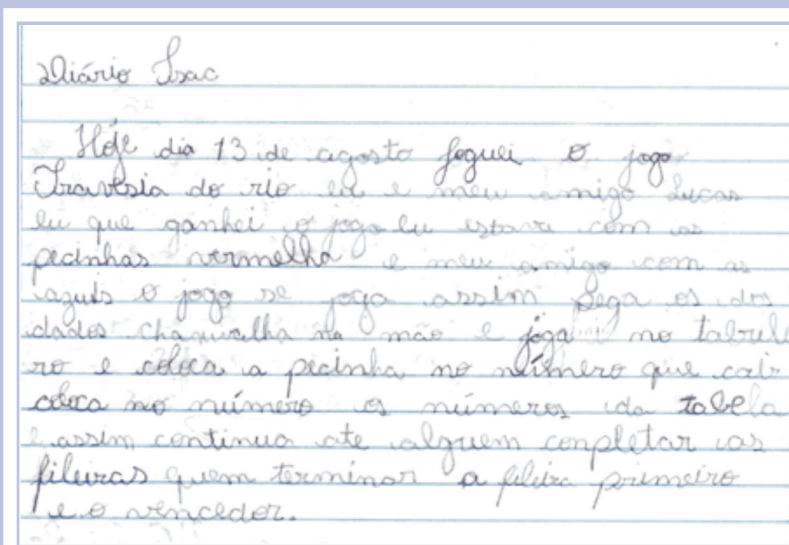 Diário Isac
Hoje dia 13 de agosto joguei o jogo
Travesia do rio eu e meu amigo Lucas
eu que ganhei o jogo eu estava com as
pecinhas vermelha e meu amigo com as
azuis o jogo se joga assim pega os dos
dados chaqualha na mão e joga no tabule
ro e coloca a pecinha no número que cair
coloca no número os números da tabela
e assim continua ate alguem conpletar as
fileiras quem terminar a fileira primeiro
e o vencedor.